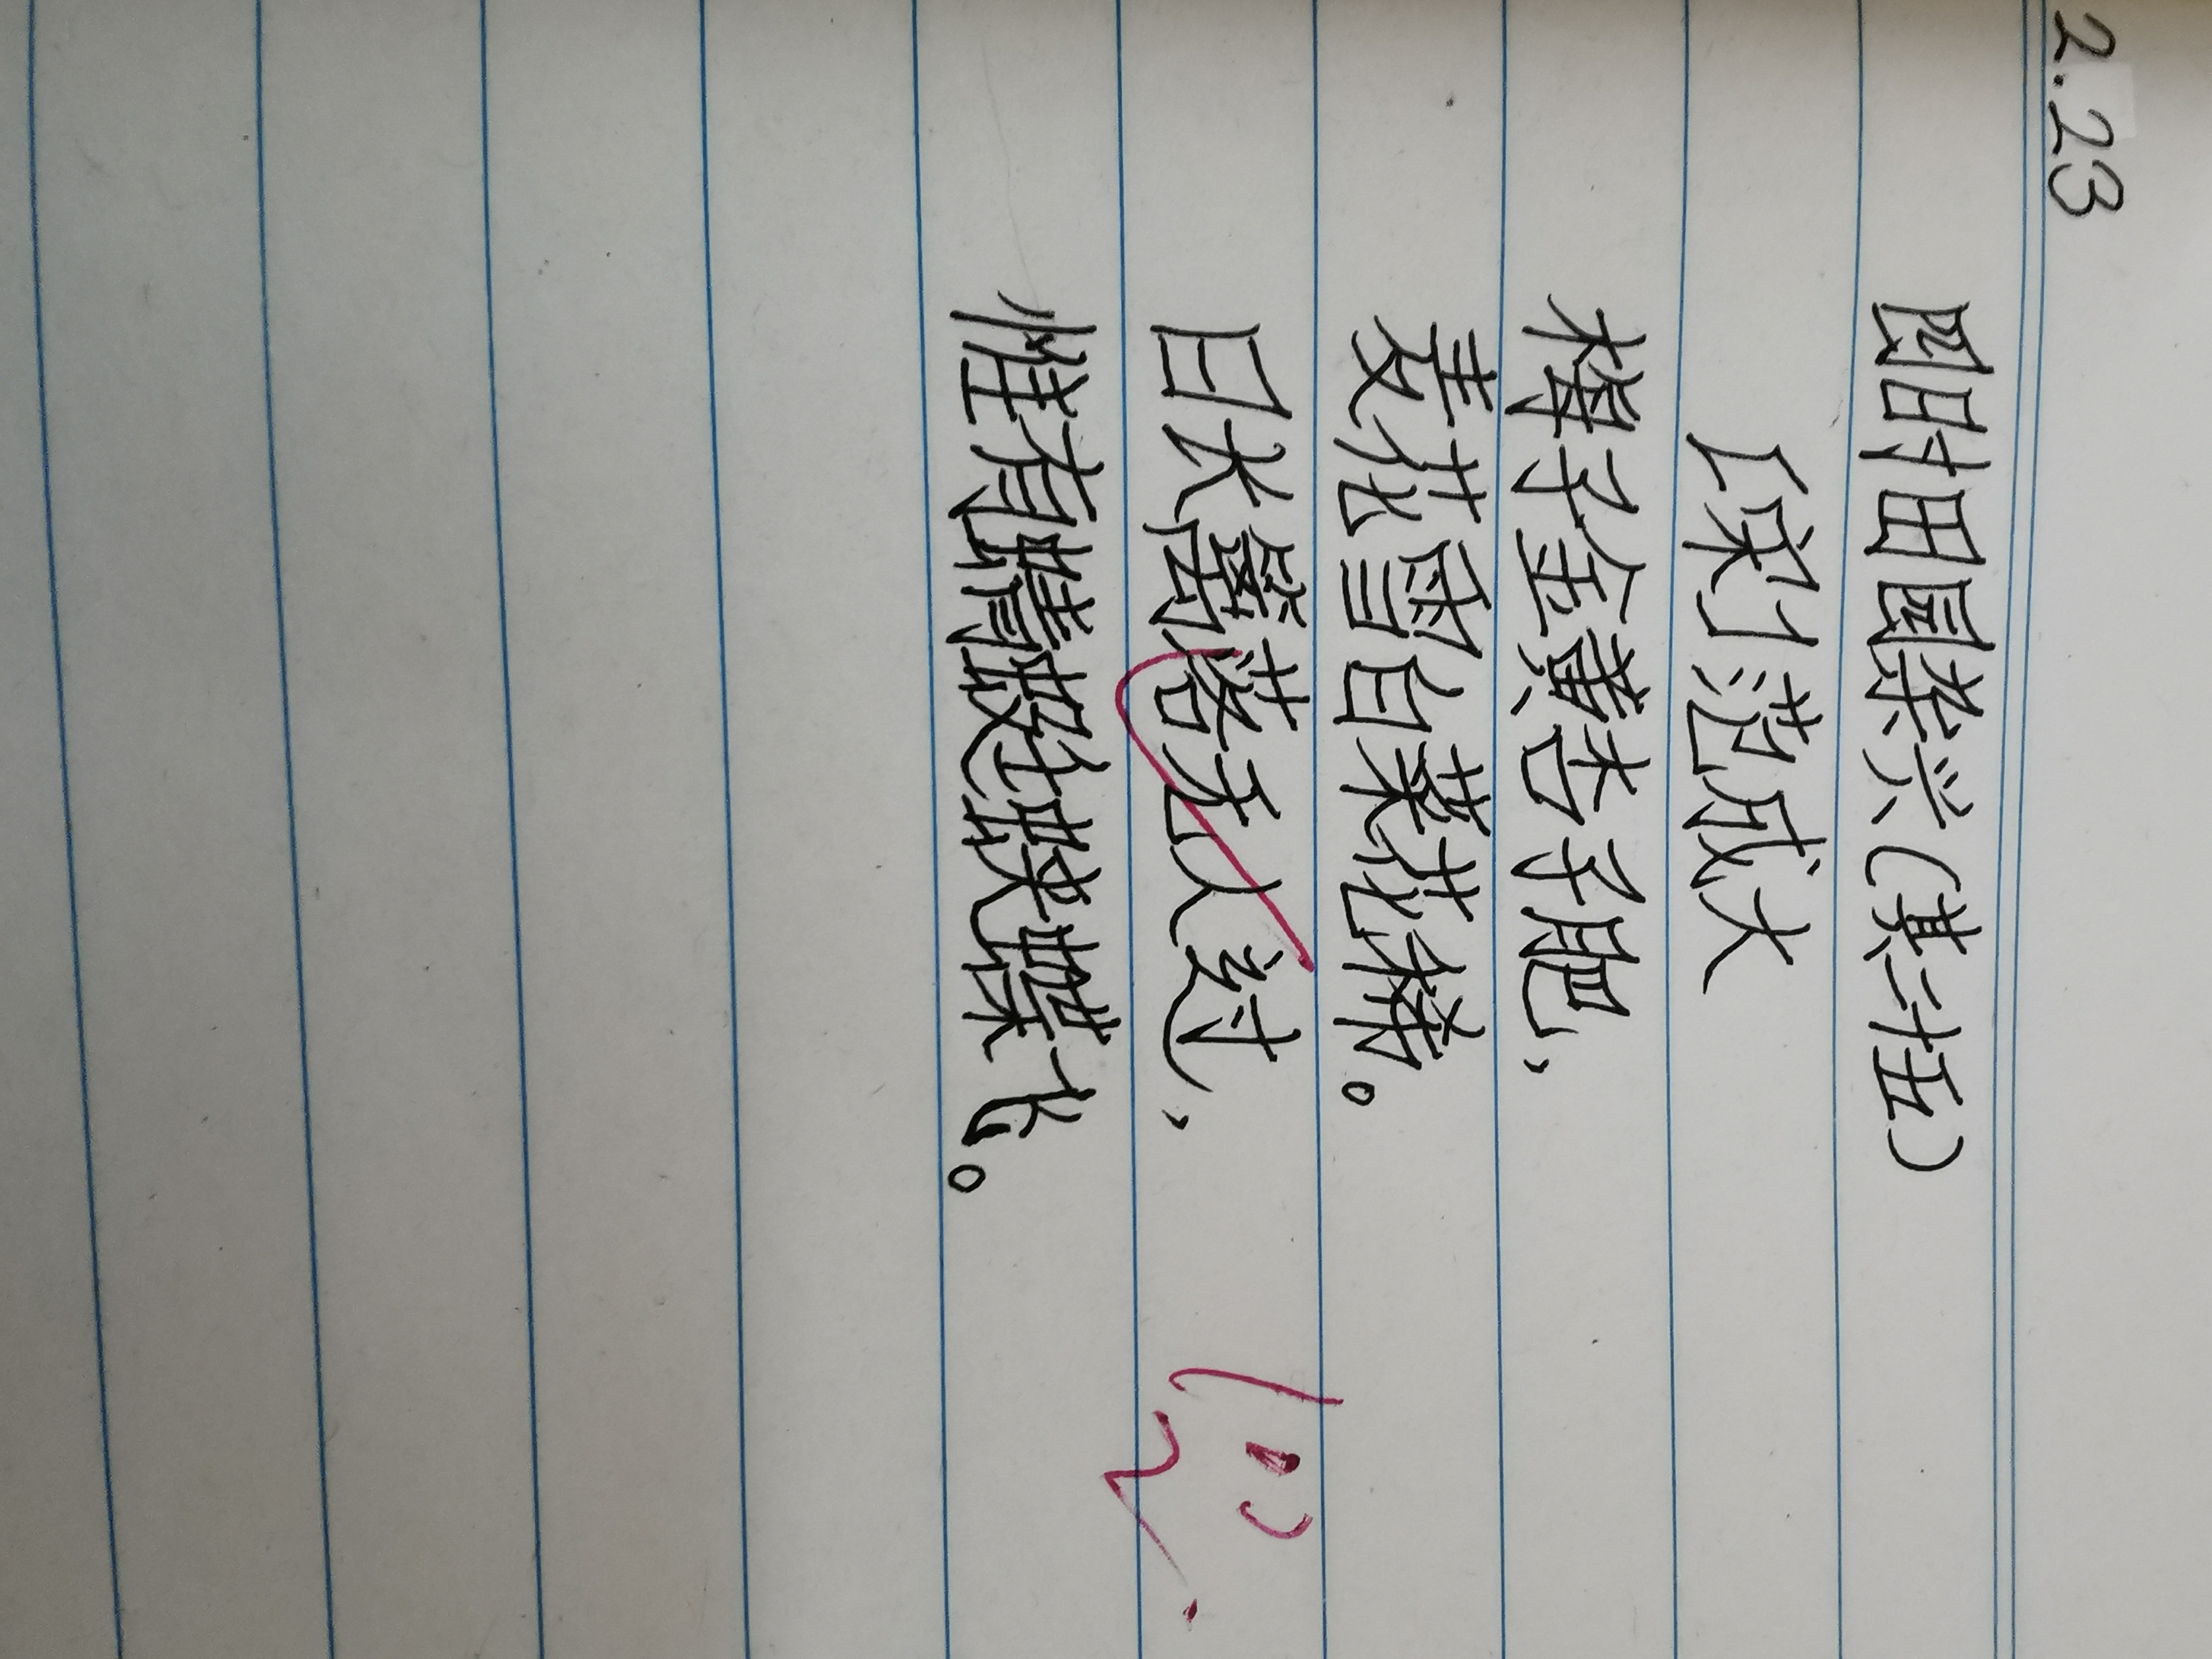 2.23
四时田园杂兴(其二十五)
[宋]范成大
梅子金黄杏子肥,
麦花雪白菜花稀。
日长篱落无人过,
惟有蜻蜓蛱蝶飞。